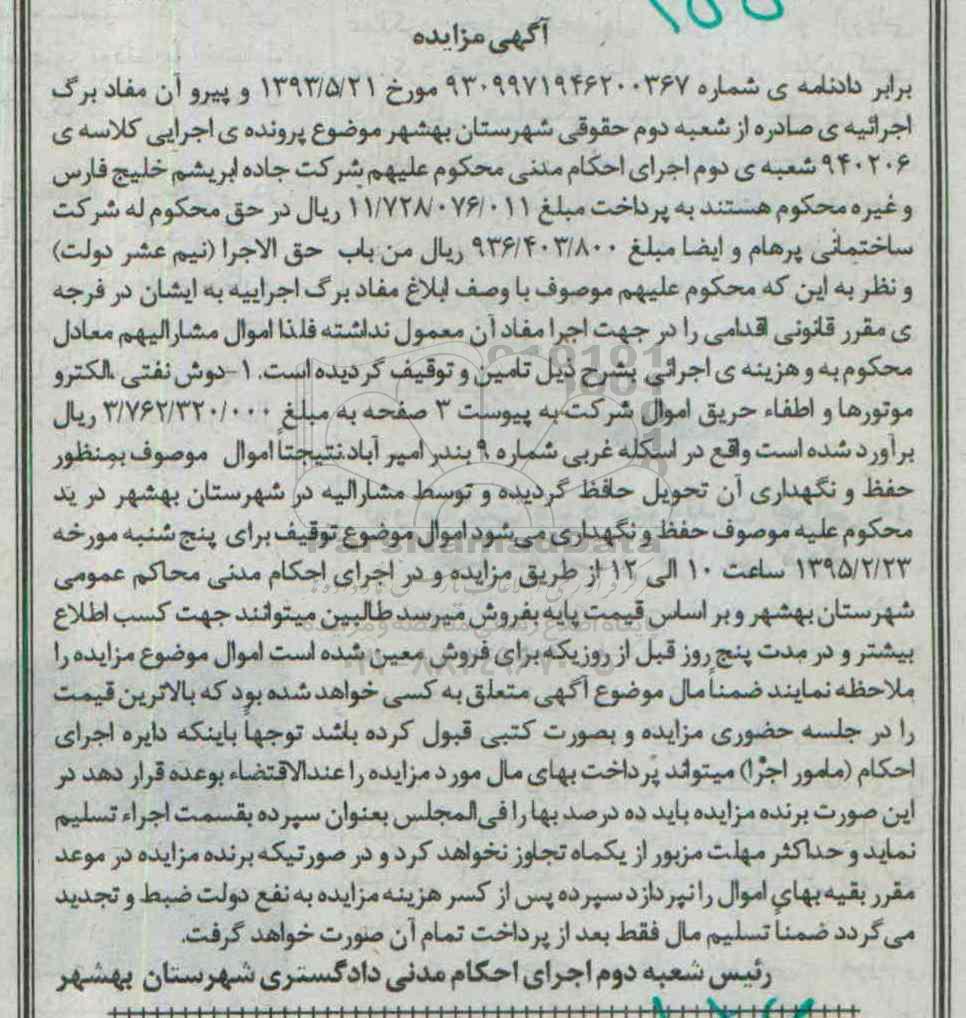 آگهی مزایده
برابر دادنامه ی شماره ۹۳۰۹۹۷۱۹۴۶۲۰۰۳۶۷ مورخ ۱۳۹۳/۵/۲۱ و پیرو آن مفاد برگ
اجرائیه ی صادره از شعبه دوم حقوقی شهرستان بهشهر موضوع پرونده ی اجرایی کلاسه ی
۹۴۰۲۰۶ شعبه ی دوم اجرای احکام مدنی محکوم علیهم شرکت جاده ابریشم خلیج فارس
و غیره محکوم هستند به پرداخت مبلغ ۱۱/۷۲۸/۰۷۶/۰۱۱ ریال در حق محکوم له شرکت
ساختمانی پرهام و ایضا مبلغ ۹۳۶/۴۰۳/۸۰۰ ریال من باب حق الاجرا (نیم عشر دولت)
و نظر به این که محکوم علیهم موصوف با وصف ابلاغ مفاد برگ اجراییه به ایشان در فرجه
ی مقرر قانونی اقدامی را در جهت اجرا مفاد آن معمول نداشته فلذا اموال مشارالیهم معادل
محکوم به و هزینه ی اجرائی بشرح ذیل تامین و توقیف گردیده است. ۱-دوش نفتی ،الکترو
موتورها و اطفاء حریق اموال شرکت به پیوست ۳ صفحه به مبلغ ۳/۷۶۲/۳۲۰/۰۰۰ ریال
برآورد شده است واقع در اسکله غربی شماره ۹ بندر امیر آباد.نتیجتاً اموال موصوف بمنظور
حفظ و نگهداری آن تحویل حافظ گردیده و توسط مشارالیه در شهرستان بهشهر در ید
محکوم علیه موصوف حفظ و نگهداری می‌شود اموال موضوع توقیف برای پنج شنبه مورخه
۱۳۹۵/۲/۲۳ ساعت ۱۰ الی ۱۲ از طریق مزایده و در اجرای احکام مدنی محاکم عمومی
شهرستان بهشهر و بر اساس قیمت پایه بفروش میرسد طالبین میتوانند جهت کسب اطلاع
بیشتر و در مدت پنج روز قبل از روزیکه برای فروش معین شده است اموال موضوع مزایده را
ملاحظه نمایند ضمناً مال موضوع آگهی متعلق به کسی خواهد شده بود که بالاترین قیمت
را در جلسه حضوری مزایده و بصورت کتبی قبول کرده باشد توجهاً باینکه دایره اجرای
احکام (مامور اجرا) میتواند پرداخت بهای مال مورد مزایده را عندالاقتضاء بوعده قرار دهد در
این صورت برنده مزایده باید ده درصد بها را فی‌المجلس بعنوان سپرده بقسمت اجراء تسلیم
نماید و حداکثر مهلت مزبور از یکماه تجاوز نخواهد کرد و در صورتیکه برنده مزایده در موعد
مقرر بقیه بهای اموال را نپردازد سپرده پس از کسر هزینه مزایده به نفع دولت ضبط و تجدید
می گردد ضمناً تسلیم مال فقط بعد از پرداخت تمام آن صورت خواهد گرفت.
رئیس شعبه دوم اجرای احکام مدنی دادگستری شهرستان بهشهر